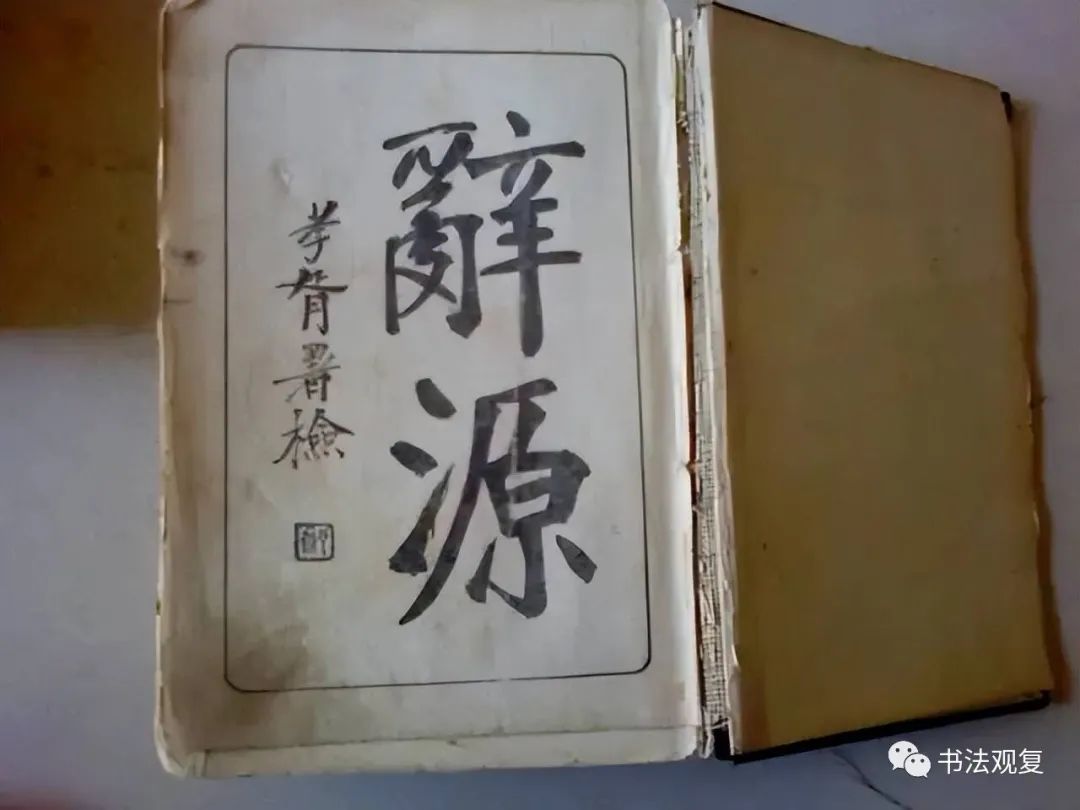 辭源
孝胥署檢
鄭
书法观复